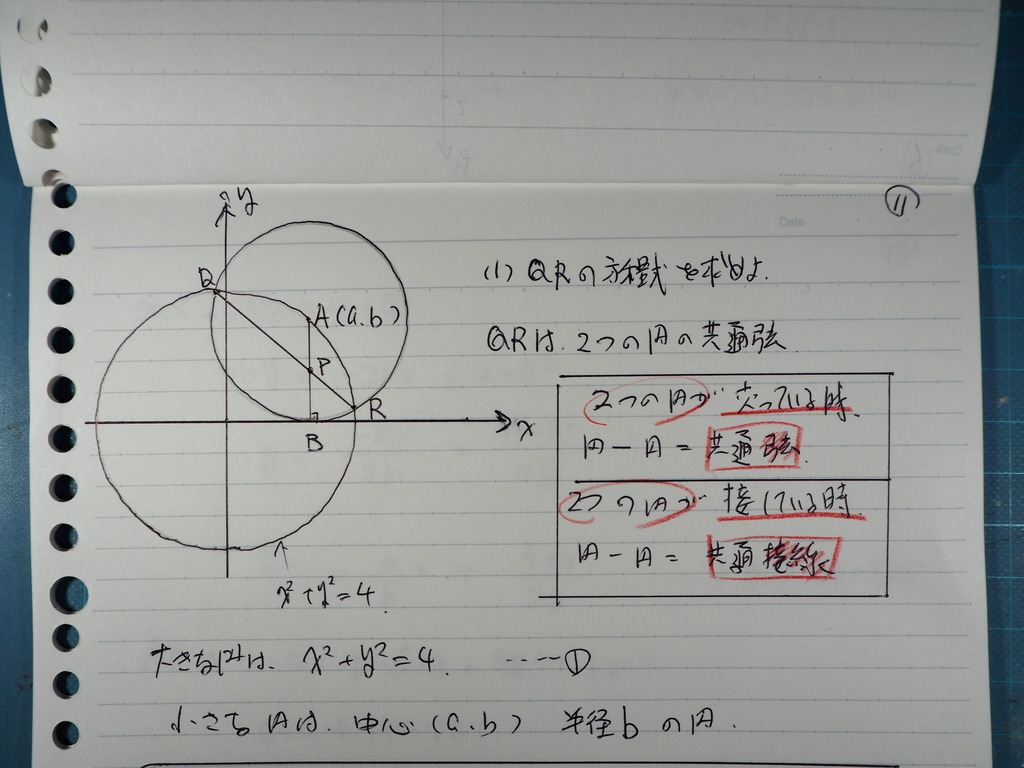 Date
11
y
Q
A(a.b)
P
R
B
x
x²+y²=4.
(1) QRの方程式を求めよ.
QRは.2つの円の共通弦
2つの円が交っている時.
円−円=共通弦
2つの円が接している時.
円−円=共通接線
大きな円は. x²+y²=4. ----①
小さな円は.中心(a.b) 半径bの円.